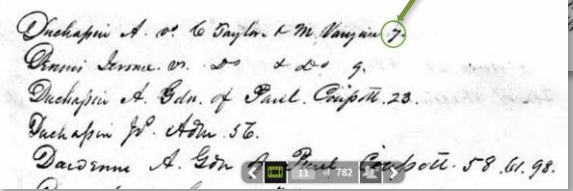 Duchapin A. vs C Taylor & M. Vaugine 7.
Dennis Jerome. vs. Do & Do 9.
Duchapin A. Gdn. of Paul. Coupott. 23.
Duchapin Jno. Adm. 56.
Dardenne A. Gdn of Paul Coupott. 58. 61. 98.
11 of 782